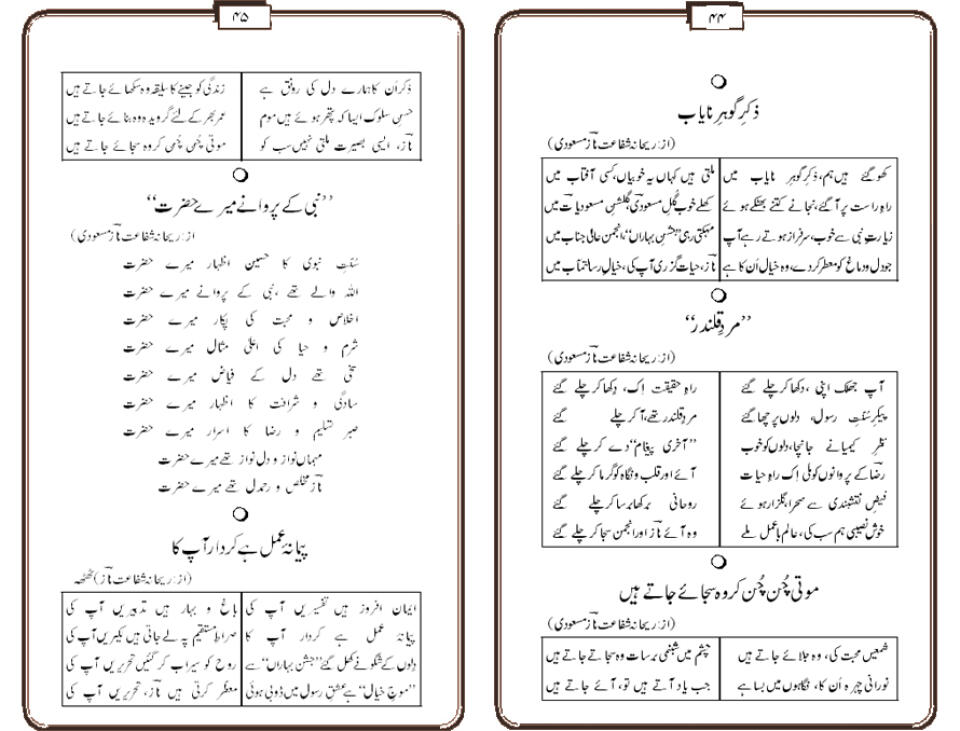 ۴۴
ذکرِ گوہرِ نایاب
(از: ریحانہ شفاعت نازؔ مسعودی)
کھو گئے ہیں ہم، ذکرِ گوہرِ نایاب میں ملتی ہیں کہاں یہ خوبیاں، کسی آفتاب میں
راہِ راست پر آ گئے، نجانے کتنے بھٹکے ہوئے کھلے خوب گُلِ مسعودی گلشنِ مسعودیات میں
زیارتِ نبی سے خوب، سرفراز ہوتے رہے آپ مہکتی رہی ”جشنِ بہاراں“، انجمن عالی جناب میں
جو دل و دماغ کو معطر کر دے، وہ خیال اُن کا ہے نازؔ، حیات گزری آپ کی، خیالِ رسالتمآب میں
”مردِ قلندر“
(از: ریحانہ شفاعت نازؔ مسعودی)
آپ جھلک اپنی ، دِکھا کر چلے گئے راہِ حقیقت اِک، دِکھا کر چلے گئے
پیکرِ سُنتِ رسول، دلوں پر چھا گئے مردِ قلندر تھے، آ کر چلے گئے
نظرِ کیمیا نے جانچا، دلوں کو خوب ”آخری پیغام“ دے کر چلے گئے
رضا کے پروانوں کو ملی اِک راہِ حیات آئے اور قلب و نگاہ کو گرما کر چلے گئے
فیضِ نقشبندی سے صحرا، گلزار ہوئے روحانی برکھا برسا کر چلے گئے
خوش نصیبی ہم سب کی، عالم باعمل ملے وہ آئے نازؔ اور انجمن سجا کر چلے گئے
موتی چُن چُن کر وہ سجائے جاتے ہیں
(از: ریحانہ شفاعت نازؔ مسعودی)
شمعیں محبت کی، وہ جلائے جاتے ہیں چشم میں شبنمی برسات وہ سجاتے جاتے ہیں
نورانی چہرہ اُن کا، نگاہوں میں بسا ہے جب یاد آتے ہیں تو، آئے جاتے ہیں
۴۵
ذکر اُن کا ہمارے دل کی رونق ہے زندگی کو جینے کا سلیقہ وہ سکھائے جاتے ہیں
حسنِ سلوک ایسا کہ پتھر ہوئے ہیں موم عمر بھر کے لئے گرویدہ وہ بنائے جاتے ہیں
نازؔ، ایسی بصیرت ملتی نہیں سب کو موتی چُن چُن کر وہ سجائے جاتے ہیں
”نبی کے پروانے میرے حضرت“
از: ریحانہ شفاعت نازؔ مسعودی)
سُنتِ نبوی کا حسین اظہار میرے حضرت
اللہ والے تھے ، نبی کے پروانے میرے حضرت
اخلاص و محبت کی پکار میرے حضرت
شرم و حیا کی اعلیٰ مثال میرے حضرت
سخی تھے دل کے فیاض میرے حضرت
سادگی و شرافت کا اظہار میرے حضرت
صبر تسلیم و رضا کا اسرار میرے حضرت
مہماں نواز و دل نواز تھے میرے حضرت
نازؔ مخلص و رحمدل تھے میرے حضرت
پیمانۂ عمل ہے کردار آپ کا
(از: ریحانہ شفاعت نازؔ) ٹھٹھہ
ایمان افروز ہیں تفسیریں آپ کی باغ و بہار ہیں تدبیریں آپ کی
پیمانۂ عمل ہے کردار آپ کا صراطِ مستقیم پہ لے جاتی ہیں لکیریں آپ کی
دلوں کے شگوفے کھل گئے ”جشن بہاراں“ سے روح کو سیراب کر گئیں تحریریں آپ کی
”موجِ خیال“ ہے عشقِ رسول میں ڈوبی ہوئی معطر کرتی ہیں نازؔ، تحریریں آپ کی